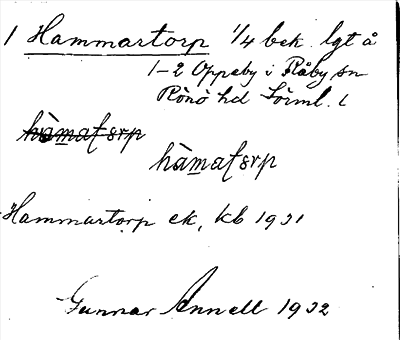 1 Hammartorp 1/4 bek. lgt å
1-2 Oppeby i Råby sn
Rönö hd Sörml. l
hàmaʃsrp
hàmaʃsrp
Hammartorp ek, kb 1931
Gunnar Annell 1932